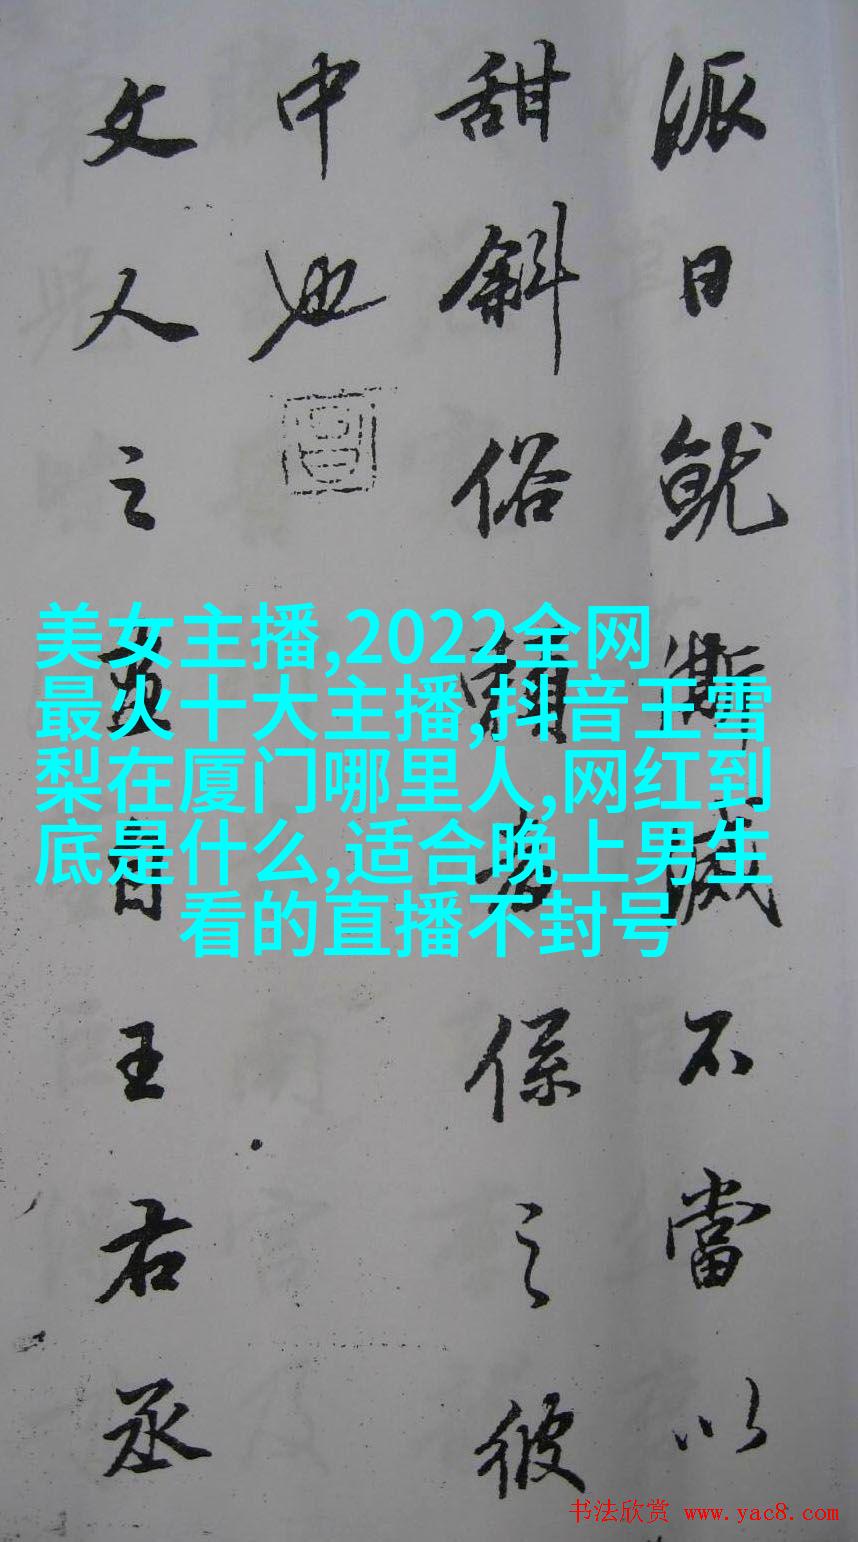 派日就澌滅不當以
甜斜俗賴者係之彼
中也
文人之畫自王右丞
美女主播,2022全网
最火十大主播,抖音王雪
梨在厦门哪里人,网红到
底是什么,适合晚上男生
看的直播不封号
书法欣赏 www.yac8.com